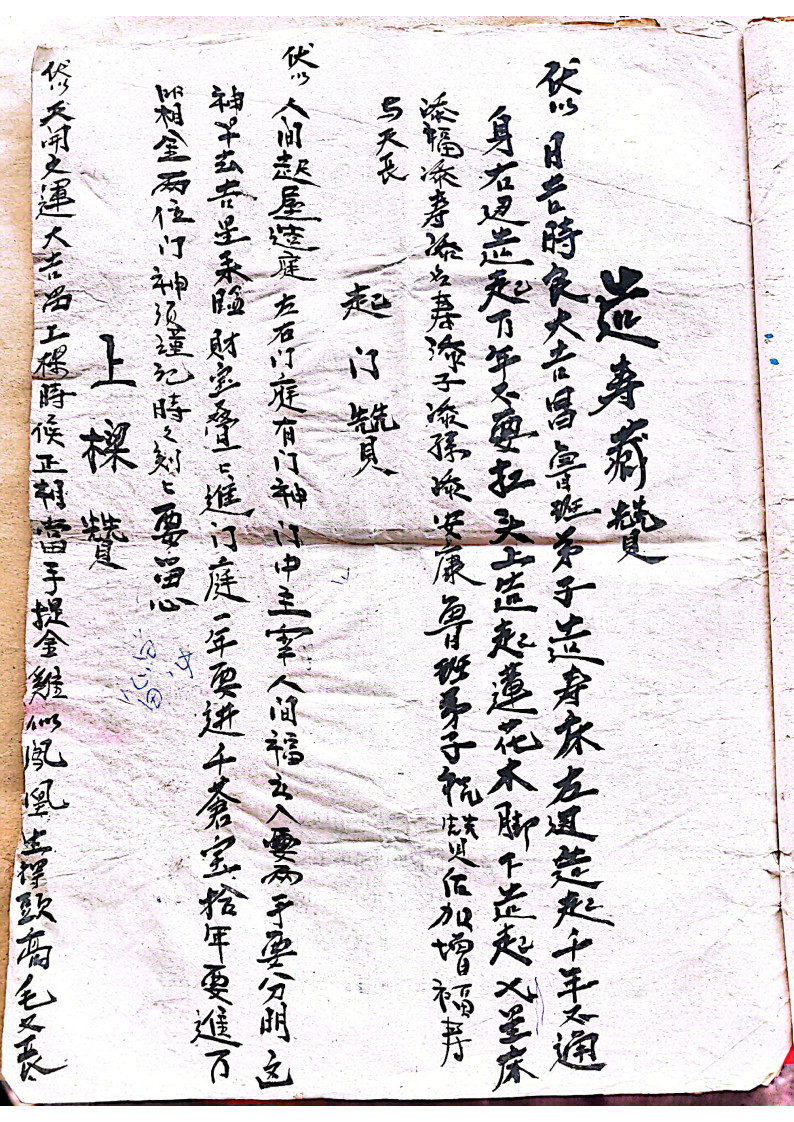 造寿藏讃
伏以日吉時良大吉昌魯班弟子造寿床左边造起千年不通
身右边造起万年不要扛头上造起蓮花木脚下造起七星床
添福添寿添名寿添子添孫添安康魯班弟子祝讃后加增福寿
与天長
起门讃
伏以人间起屋造庭左右门庭有门神门中主宰人间福出入要两手要分明凶
神早去吉星来臨財宝叠々進门庭一年要进千蒼宝拾年要進万
箱金两位门神须謹記時々刻々要留心
上樑讃
伏以天開文運大吉昌上樑時候正相當手提金雞似鳳凰生得頭高毛又長